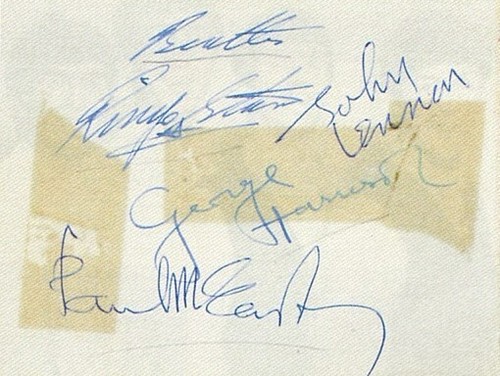 Beatles
Ringo Starr
John Lennon
George Harrison
Paul McCartney